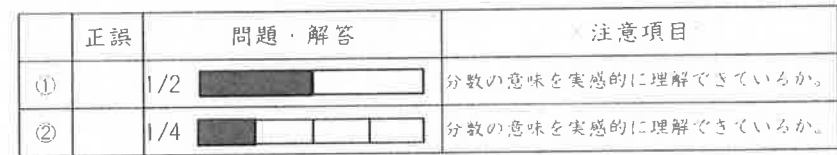 正誤 問題・解答 注意項目
① 1/2 分数の意味を実感的に理解できているか。
② 1/4 分数の意味を実感的に理解できているか。